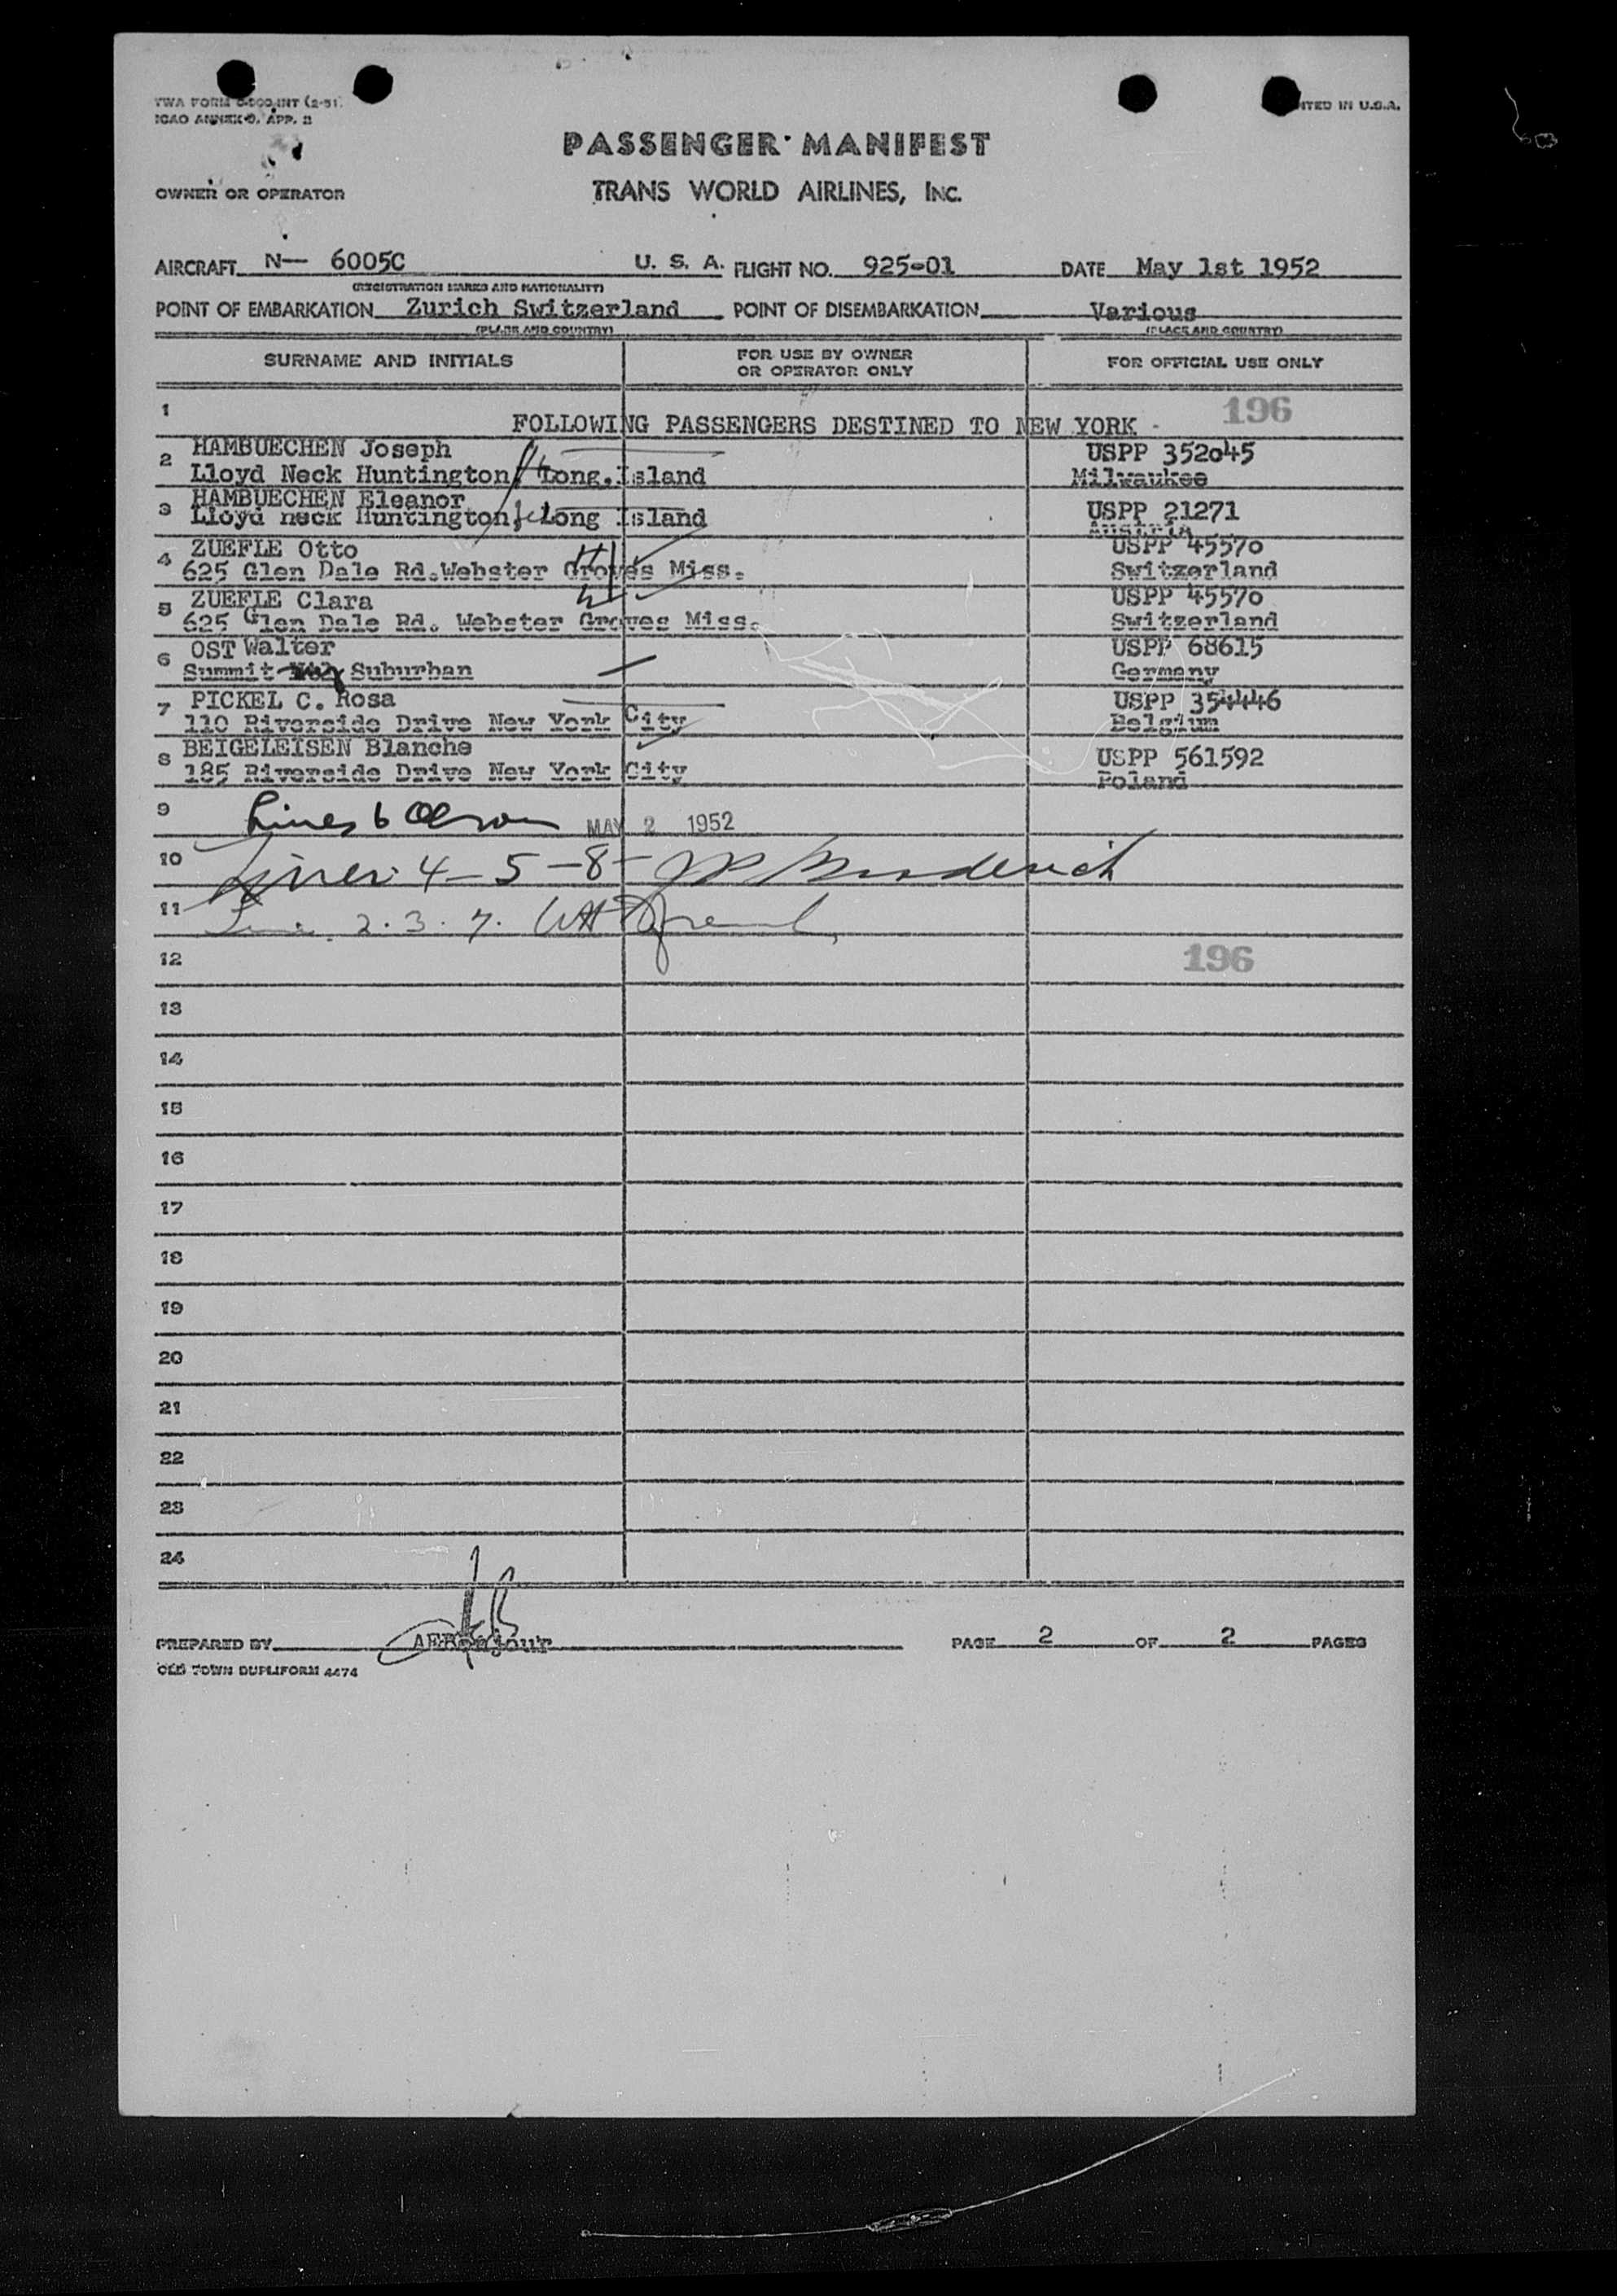 TWA FORM INT (2-51)
ICAO ANNEX 9. APP. 2
NTED IN U.S.A.
PASSENGER MANIFEST
OWNER OR OPERATOR
TRANS WORLD AIRLINES, INC.
AIRCRAFT N— 6005C U. S. A. FLIGHT NO. 925-01 DATE May 1st 1952
(REGISTRATION MARKS AND NATIONALITY)
POINT OF EMBARKATION Zurich Switzerland POINT OF DISEMBARKATION Various
(PLACE AND COUNTRY) (PLACE AND COUNTRY)
SURNAME AND INITIALS FOR USE BY OWNER OR OPERATOR ONLY FOR OFFICIAL USE ONLY
196
1 FOLLOWING PASSENGERS DESTINED TO NEW YORK -
HAMBUECHEN Joseph USPP 352045
2 Lloyd Neck Huntington Long.Island Milwaukee
HAMBUECHEN Eleanor USPP 21271
3 Lloyd neck Huntington Long Island Austria
ZUEFLE Otto USPP 45570
4 625 Glen Dale Rd.Webster Groves Miss. Switzerland
ZUEFLE Clara USPP 45570
5 625 Glen Dale Rd. Webster Groves Miss. Switzerland
OST Walter USPP 68615
6 Summit Suburban Germany
PICKEL C. Rosa USPP 354446
7 110 Riverside Drive New York City Belgium
BEIGELEISEN Blanche USPP 561592
8 185 Riverside Drive New York City Poland
9 Lines 6 Olson MAY 2 1952
10 Lines 4-5-8-
11 Line 2.3.7.
12 196
13
14
15
16
17
18
19
20
21
22
23
24
PREPARED BY AEBonjour PAGE 2 OF 2 PAGES
OLD TOWN DUPLIFORM 4474